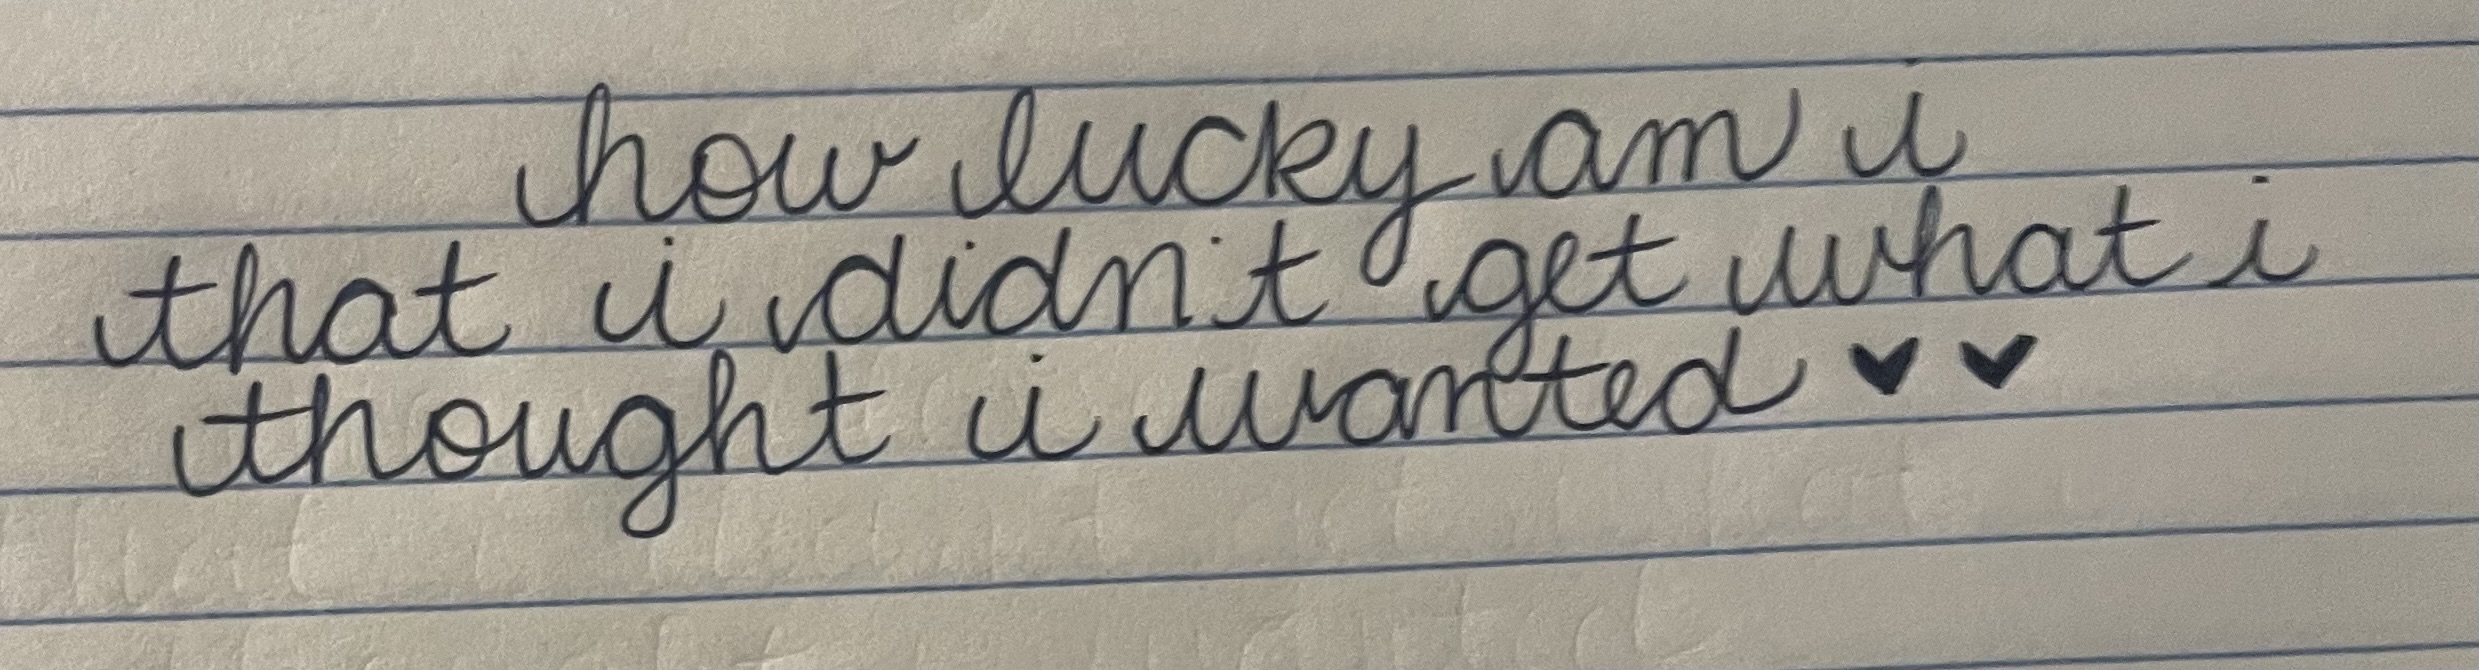 how lucky am i
that i didn't get what i
thought i wanted ♥ ♥